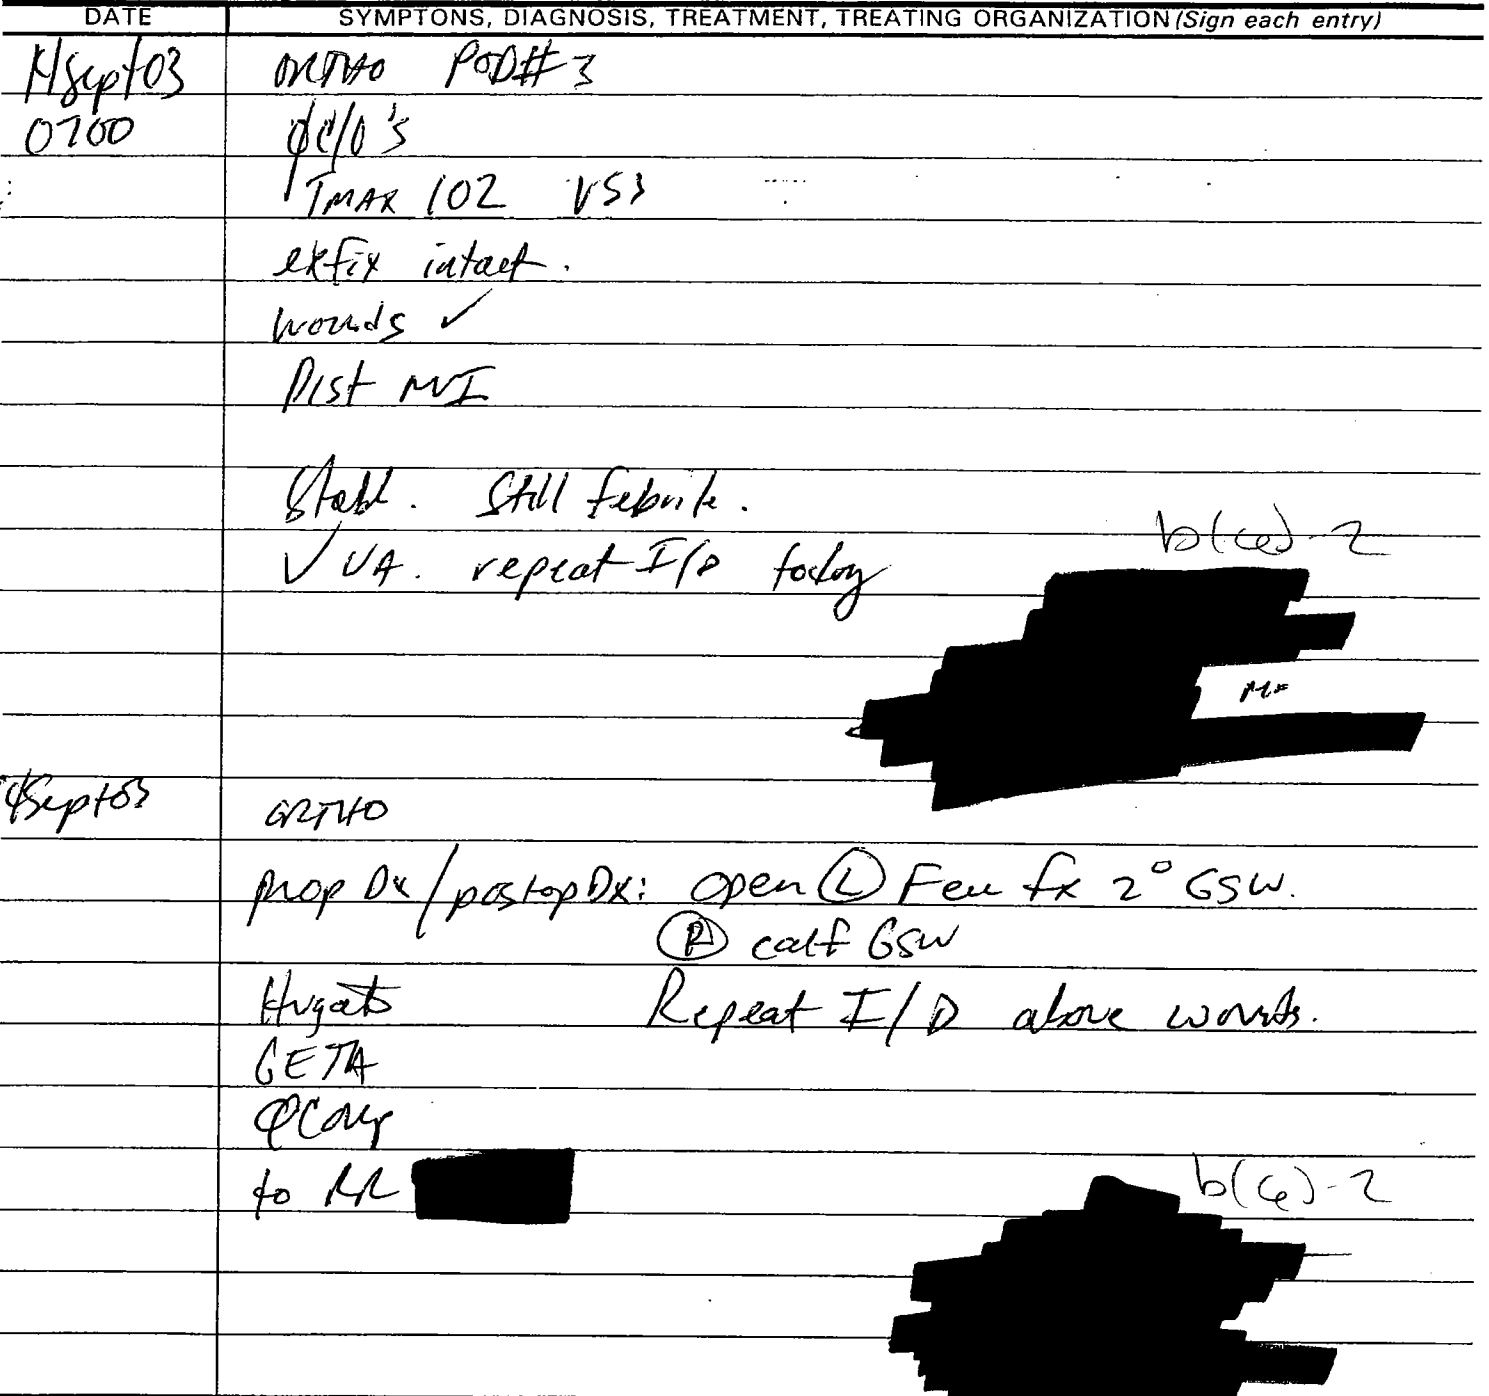 DATE SYMPTONS, DIAGNOSIS, TREATMENT, TREATING ORGANIZATION (Sign each entry)
14Sept03 ORTHO POD#3
0700 ∅ c/o's
TMAX 102 VSS
exfix intact.
wounds ✓
Dist NVI
Stable. Still febrile.
b(6)-2
✓ UA. repeat I/D today
4Sept03 ORTHO
preop Dx/postop Dx: open Ⓛ Fem fx 2° GSW.
Ⓡ calf GSW
Repeat I/D above wounds.
GETA
∅ Comp
to RR
b(6)-2